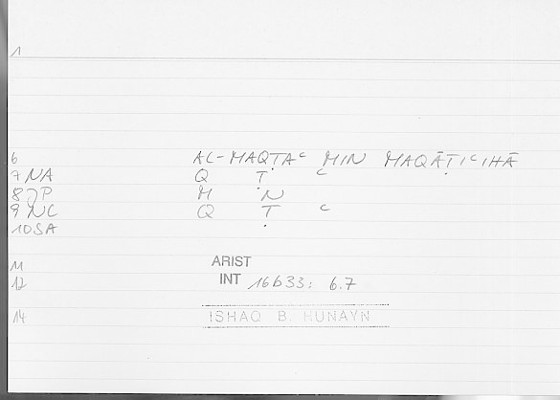 1
6 AL-MAQṬAᶜ MIN MAQĀṬIᶜIHĀ
7 NA Q Ṭ ᶜ
8 JP M N
9 NC Q Ṭ ᶜ
10 SA
11 ARIST
12 INT 16b33: 6.7
14 ISHAQ B. HUNAYN